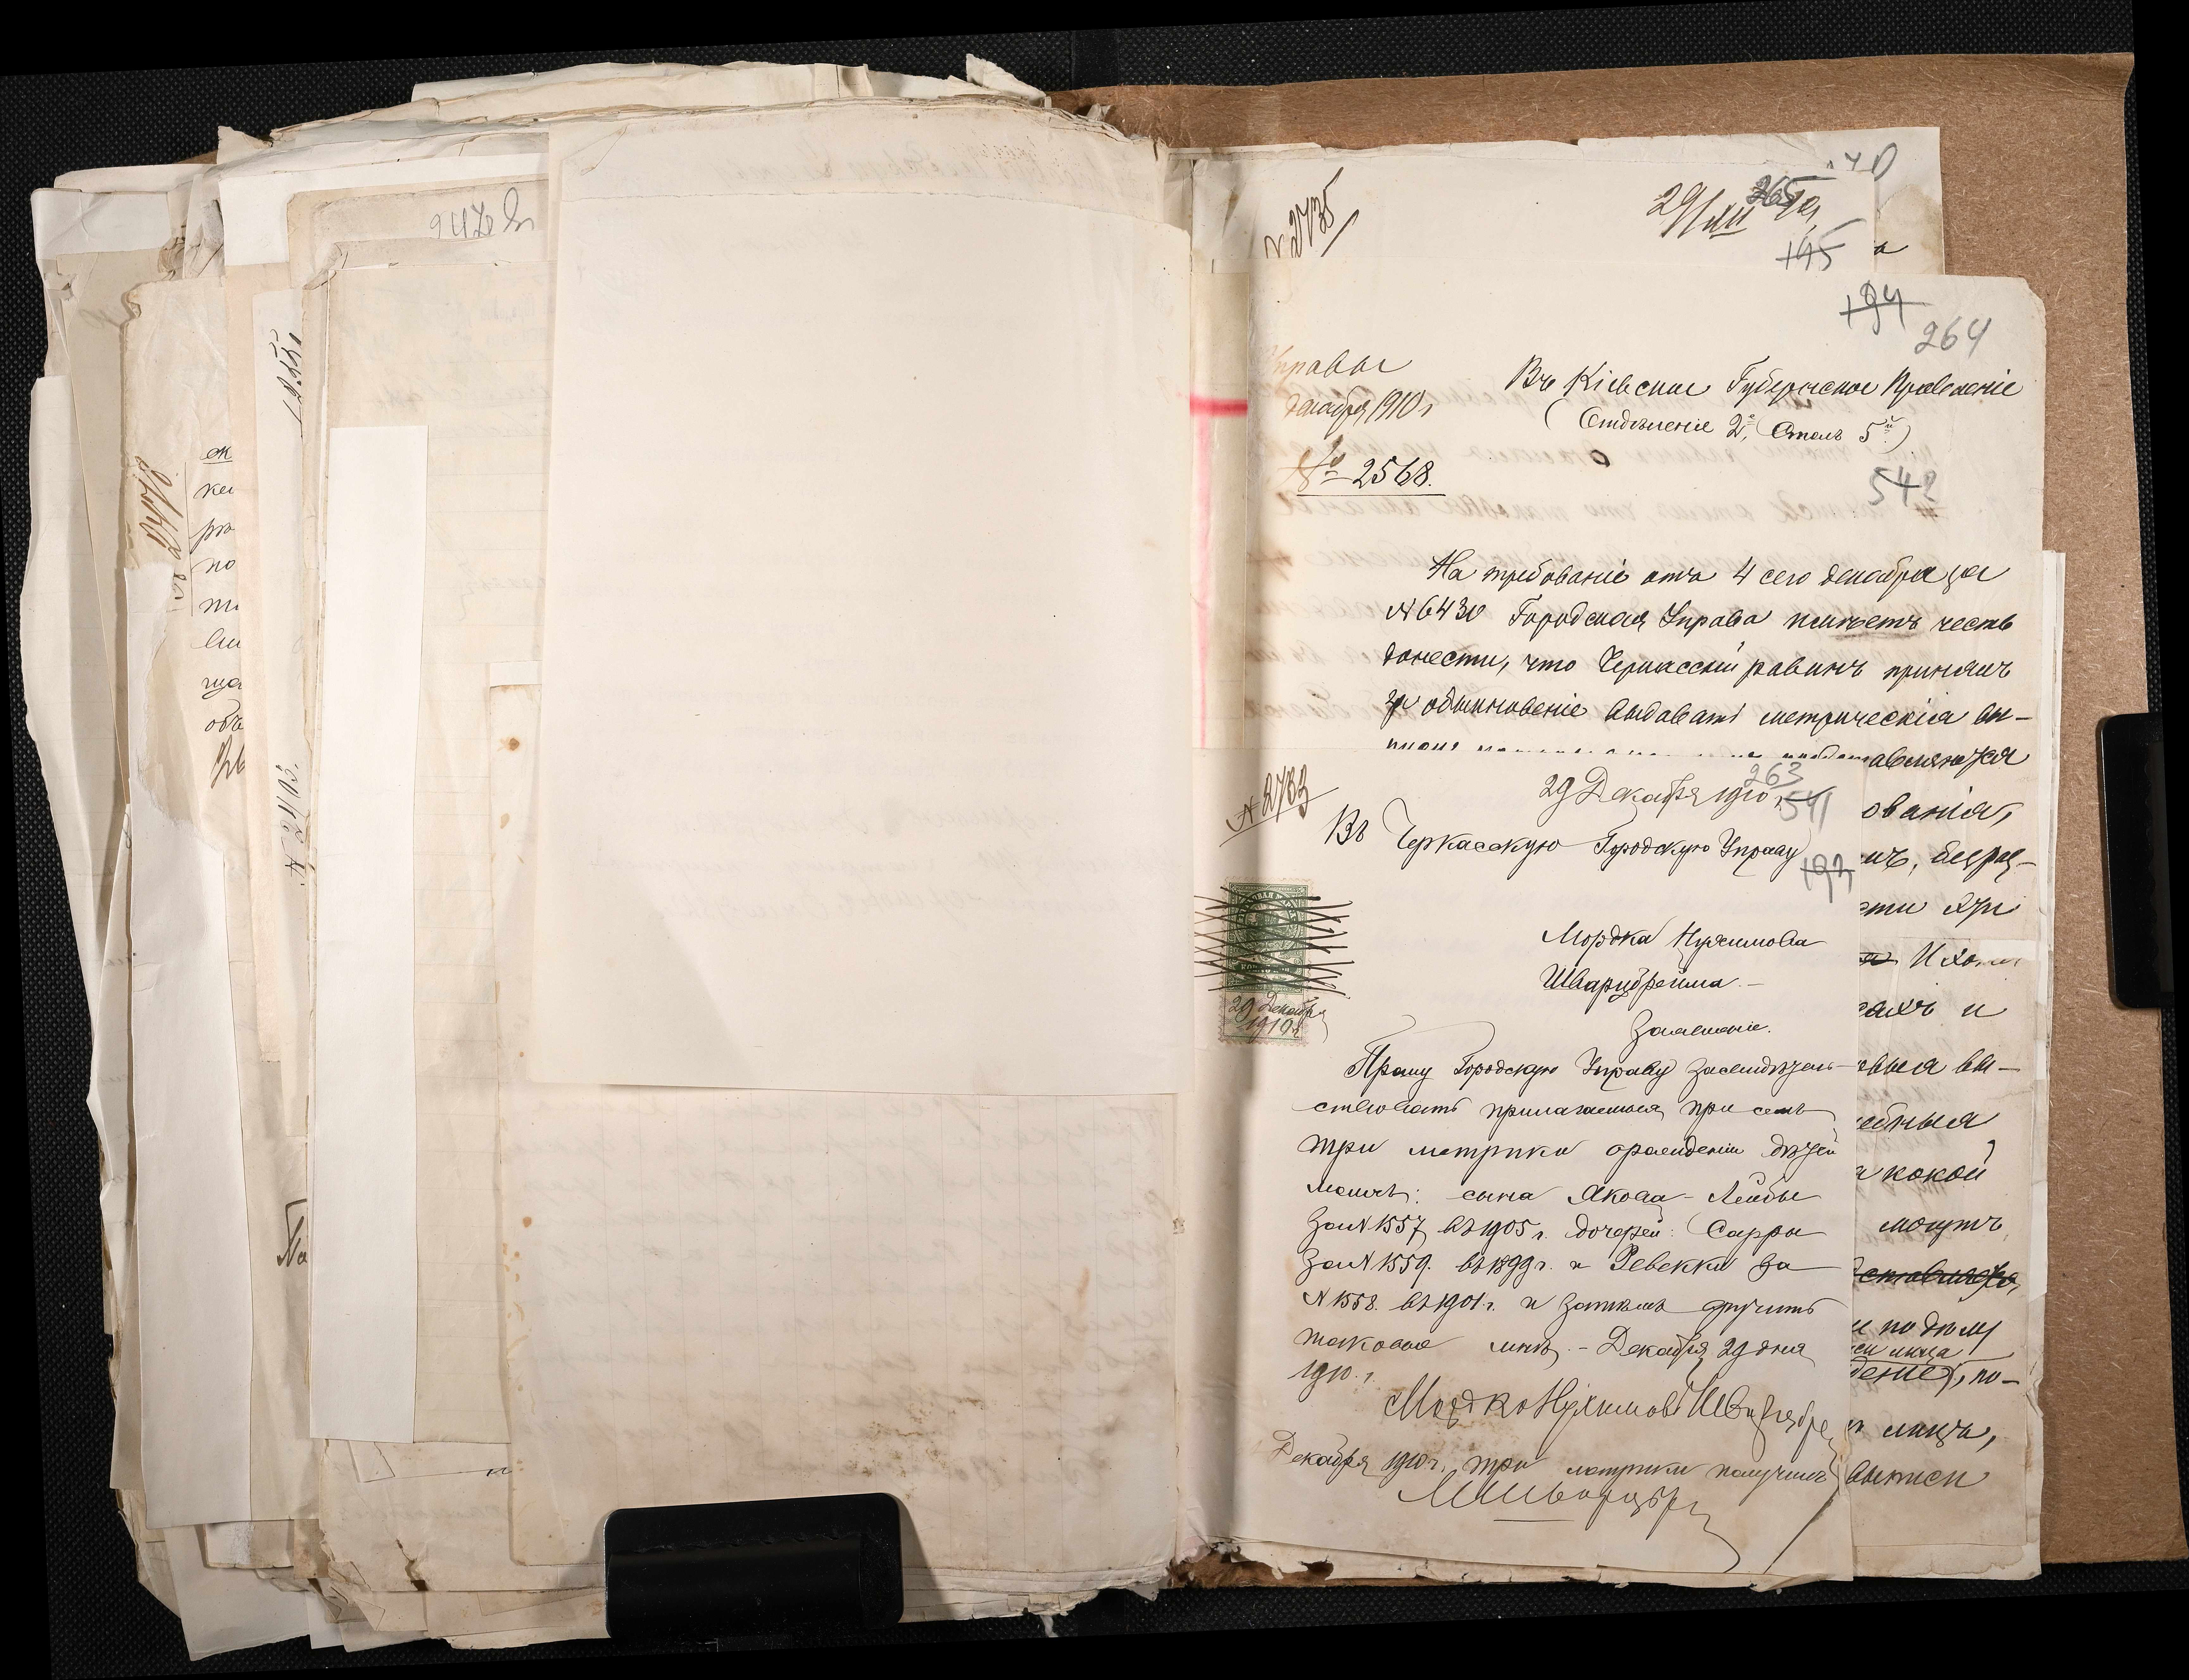 947 об
№ 2478
№ 2403.
ок
кеи
рю
по
объ
№ 2735
29/XII 10 г.
265
195
а
194
264
Управы
декабря 1910 г
№ 2568.
Въ Кіевское Губернское Правленіе
(Отдѣленіе 2е, Столъ 5й)
542
На требованіе отъ 4 сего декабря за
№ 6430 Городская Управа имѣетъ честь
донести, что Черкасскій равинъ принялъ
за обыкновеніе выдавать метрическія вы-
авляются
ованія,
етъ, безраз-
сти хри
и
выя вы-
ебныя
какой
могутъ
и подъ
сіи лица
деніе), по-
лицъ,
выписи
№ 2783
263
29 Декабря 1910 г.
541
193
Въ Черкасскую Городскую Управу
Мордка Нухимова
Шварцбрейма.-
Заявленіе.
Прошу Городскую Управу засвидѣтель-
ствовать прилагаемыя при семъ
три метрики о рожденіи дѣтей
моихъ: сына Якова-Лейбы
за № 1557 въ 1905 г. дочерей: Сарры
за № 1559. въ 1899 г. и Ревекки за
№ 1558. въ 1901 г. и затѣмъ вручить
таковые мнѣ.- Декабря 29 дня
1910. г.
Мордко Нухимовъ Шварцбре
Декабря 1910 г. три метрики получилъ
МШварцбр
29 Декабря
1910 г.